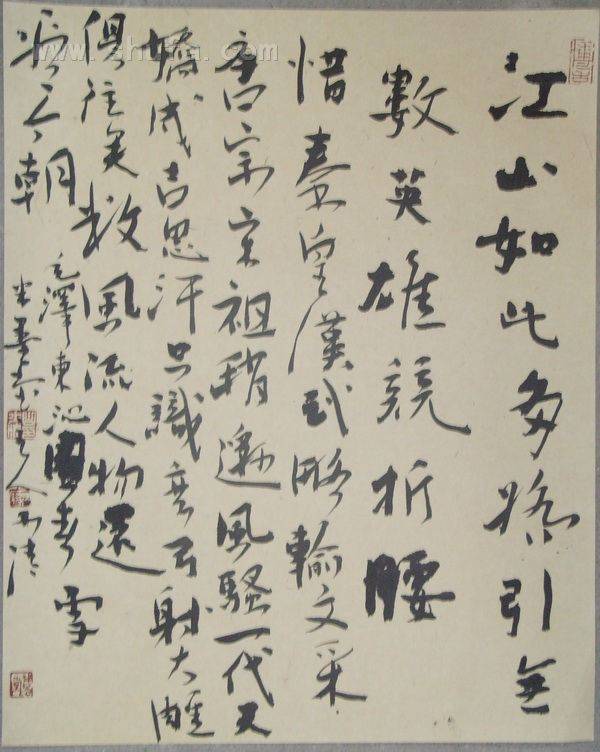 江山如此多嬌引無
數英雄競折腰
惜秦皇漢武略輸文采
唐宗宋祖稍遜風騷一代天
嬌成吉思汗只識弯弓射大雕
俱往矣数風流人物還
看今朝
毛澤東沁園春雪